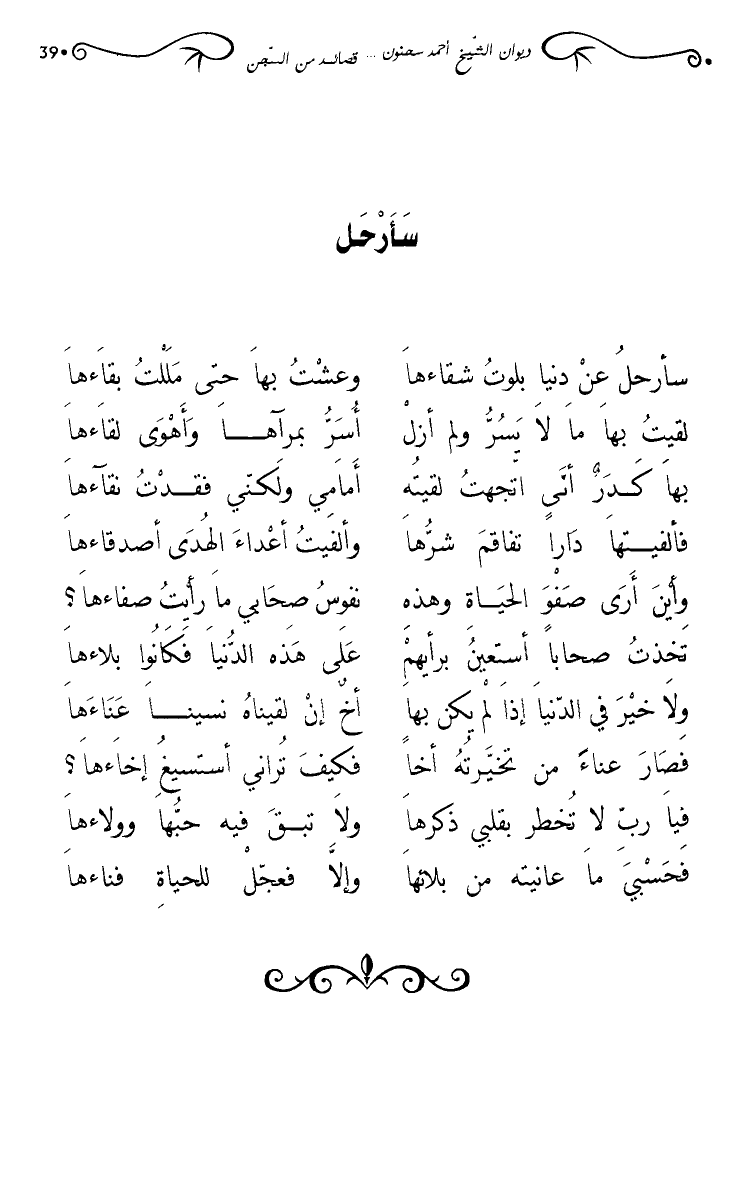 ديوان الشّيخ أحمد سحنون ... قصائد من السّجن •39
سَأَرْحَل
سأرحلُ عنْ دنيا بلوتُ شقاءهاَ وعشْتُ بهاَ حتى مَلَلْتُ بقاَءهاَ
لقيتُ بهاَ ماَ لاَ يَسُرُّ ولم أزلْ أُسَرُّ بمرآهــــاَ وَأَهْوَى لقاَءهاَ
بهاَ كَـدَرٌ أنَّى اتّجهتُ لقيتُه أَمامي ولَكنّي فقــدْتُ نقآَءهاَ
فألفيــتهاَ دَاراً تفاقمَ شرُّهاَ وألفيتُ أعْداءَ الهُدَى أصدقاءهاَ
وأَيْنَ أَرَى صَفْوَ الحيَـاةِ وهذهِ نفوسُ صحَابي ماَ رأَيتُ صفاءهاَ؟
تخذتُ صحاباً أستعينُ برأيهمْ عَلَى هَذه الدُّنياَ فَكَانُوا بلاءهاَ
ولاَ خيْرَ في الدّنياَ إذاَ لمْ يكن بهاَ أخٌ إنْ لقيناهُ نسينــــاَ عَنَاءَهاَ
فَصَارَ عناءً من تخيَّـرتُهُ أخاً فكيفَ تُراني أستـسيغُ إخاءهاَ؟
فياَ ربِّ لا تُخطر بقلبي ذكرهاَ ولاَ تبــقَ فيه حبُّهاَ وولاءهاَ
فحَسْبيَ ماَ عانيته من بلائهاَ وإلاَّ فعجّلْ للحياةِ فناءهاَ